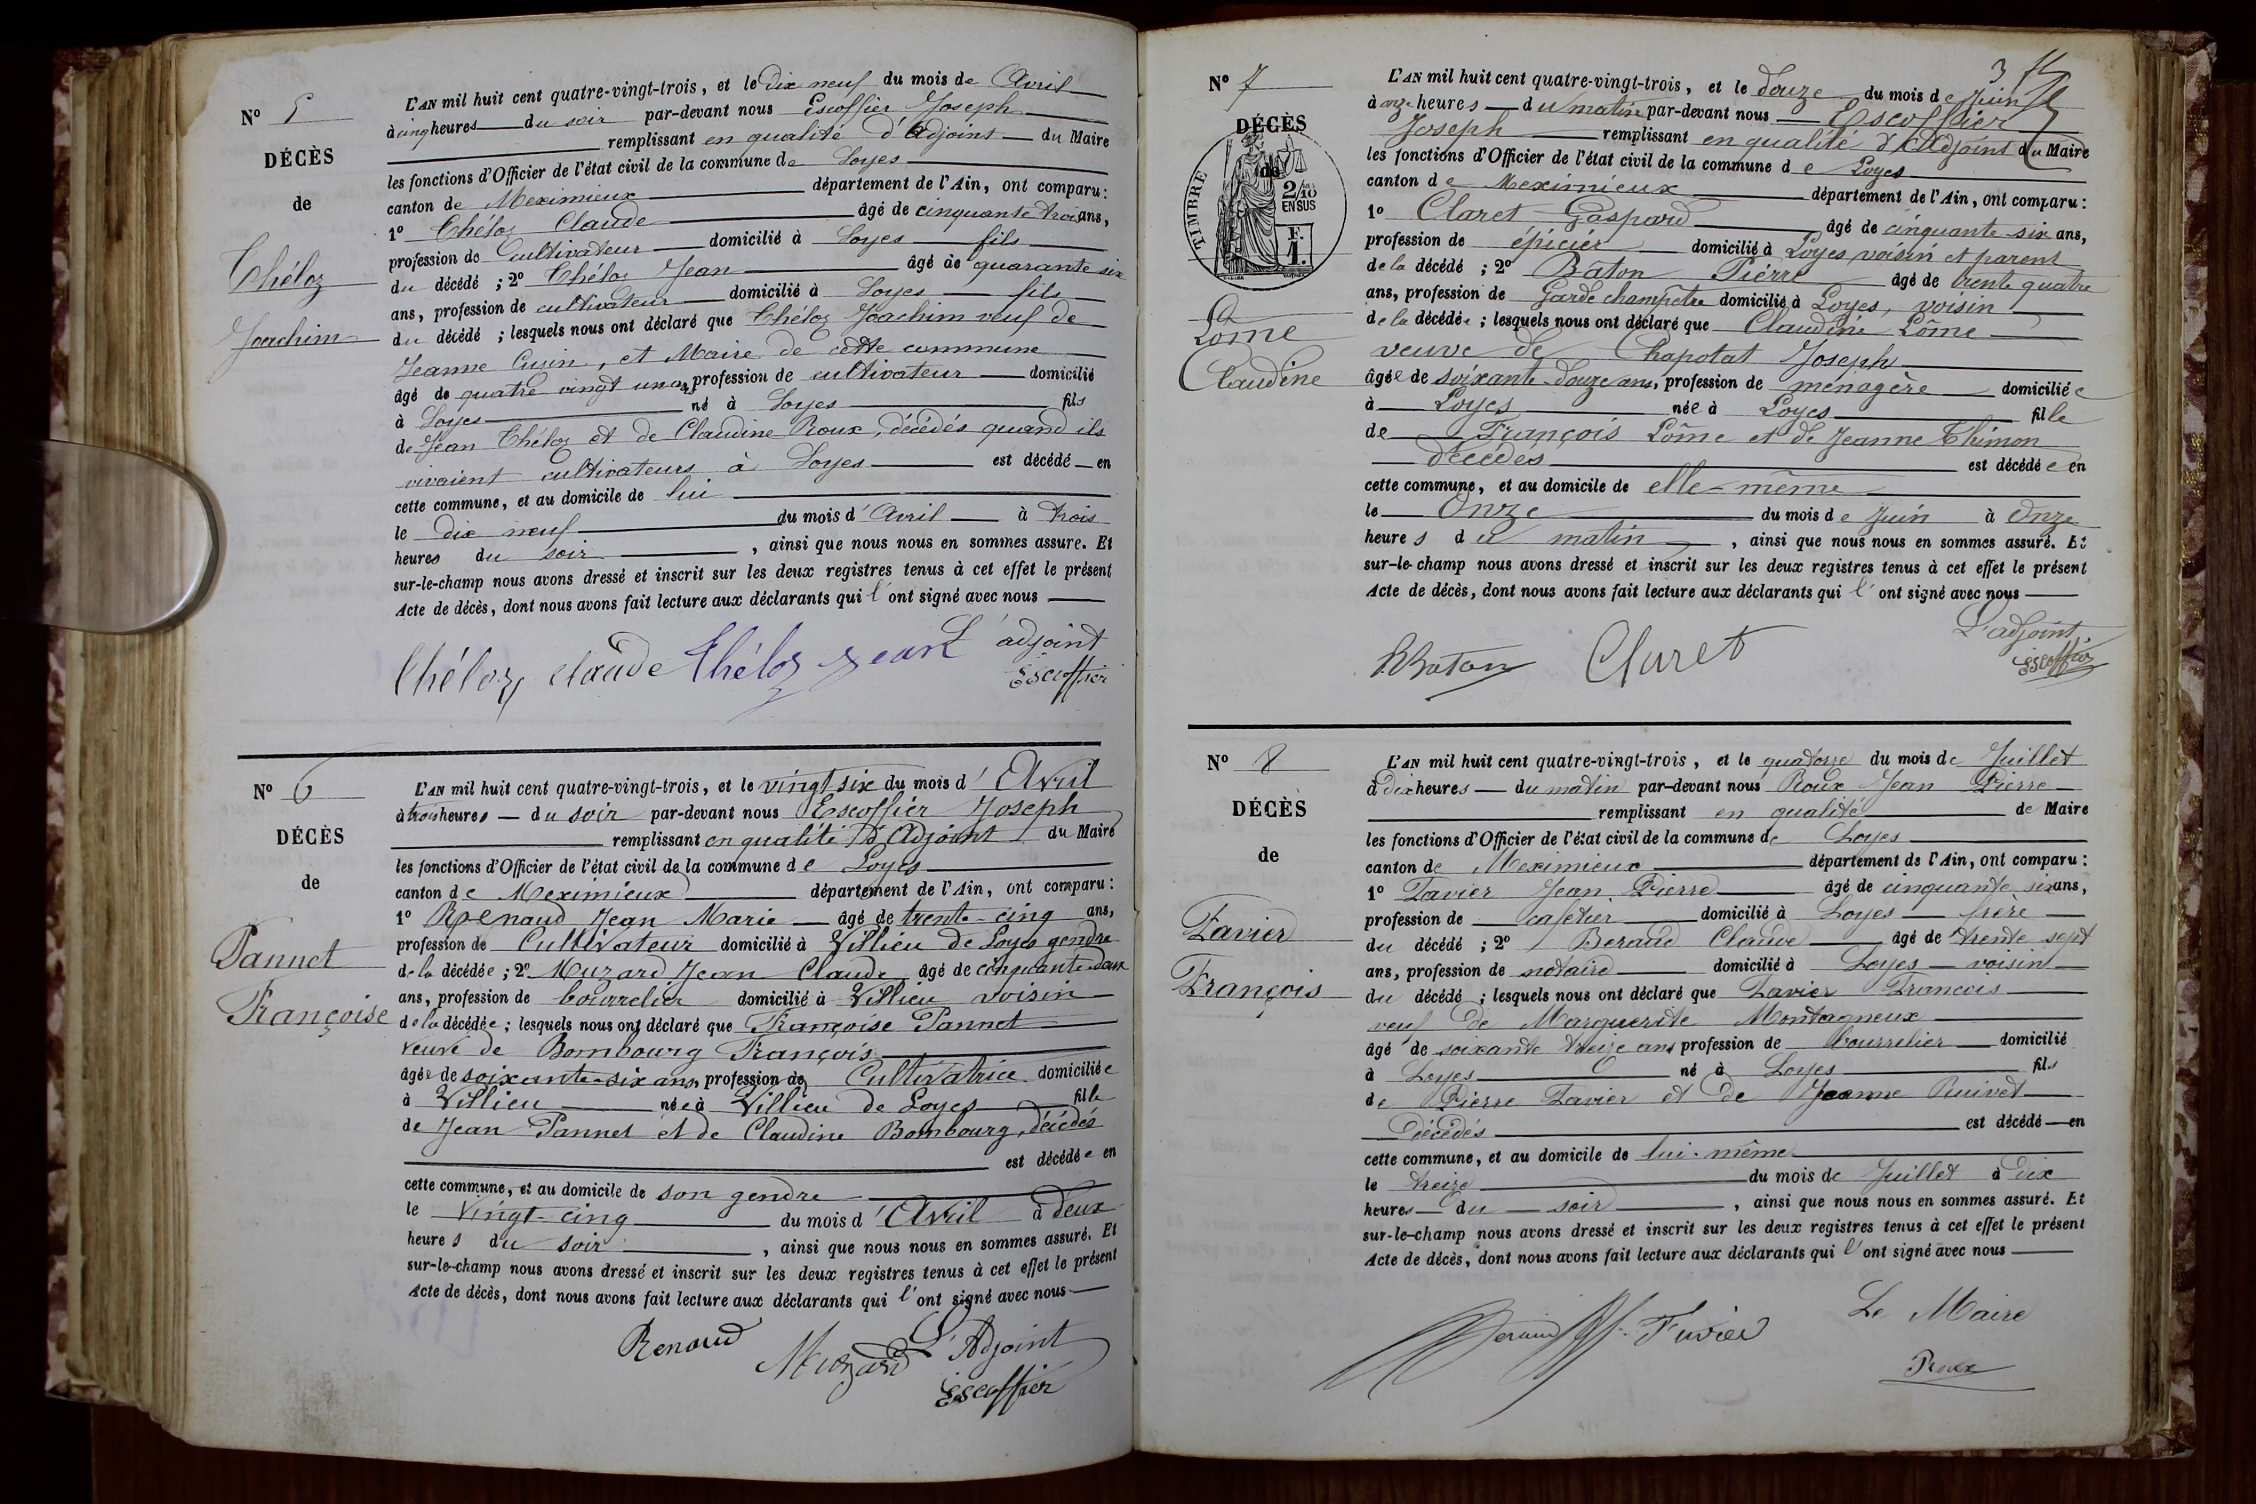 N° 5
DÉCÈS
de
Théloz
Joachim
L'AN mil huit cent quatre-vingt-trois, et le dix neuf du mois de Avril
à cinq heures du soir par-devant nous Escoffier Joseph
remplissant en qualité d'Adjoint du Maire
les fonctions d'Officier de l'état civil de la commune de Loyes
canton de Meximieux département de l'Ain, ont comparu :
1° Théloz Claude âgé de cinquante trois ans,
profession de Cultivateur domicilié à Loyes fils
du décédé ; 2° Théloz Jean âgé de quarante six
ans, profession de cultivateur domicilié à Loyes fils
du décédé ; lesquels nous ont déclaré que Théloz Joachim veuf de
Jeanne Cusin, et Maire de cette commune
âgé de quatre vingt un ans profession de cultivateur domicilié
à Loyes né à Loyes fils
de Jean Théloz et de Claudine Roux, décédés quand ils
vivaient cultivateurs à Loyes est décédé en
cette commune, et au domicile de lui
le dix neuf du mois d'Avril à trois
heures du soir, ainsi que nous nous en sommes assuré. Et
sur-le-champ nous avons dressé et inscrit sur les deux registres tenus à cet effet le présent
Acte de décès, dont nous avons fait lecture aux déclarants qui l'ont signé avec nous
Théloz claude Théloz jean L'adjoint
Escoffier
N° 6
DÉCÈS
de
Pannet
Françoise
L'AN mil huit cent quatre-vingt-trois, et le vingt six du mois d'Avril
à trois heures du soir par-devant nous Escoffier Joseph
remplissant en qualité d'Adjoint du Maire
les fonctions d'Officier de l'état civil de la commune de Loyes
canton de Meximieux département de l'Ain, ont comparu :
1° Renaud Jean Marie âgé de trente-cinq ans,
profession de Cultivateur domicilié à Villieu de Loyes gendre
de la décédée ; 2° Muzard Jean Claude âgé de cinquante-deux
ans, profession de bourrelier domicilié à Villieu voisin
de la décédée ; lesquels nous ont déclaré que Françoise Pannet
veuve de Bombourg François
âgée de soixante-six ans, profession de Cultivatrice domiciliée
à Villieu née à Villieu de Loyes fille
de Jean Pannet et de Claudine Bombourg, décédés
est décédée en
cette commune, et au domicile de son gendre
le vingt-cinq du mois d'Avril à deux
heures du soir, ainsi que nous nous en sommes assuré. Et
sur-le-champ nous avons dressé et inscrit sur les deux registres tenus à cet effet le présent
Acte de décès, dont nous avons fait lecture aux déclarants qui l'ont signé avec nous
Renaud Muzard L'Adjoint
Escoffier
3
N° 7
DÉCÈS
de
TIMBRE
2/10
EN SUS
F.
1.
Lôme
Claudine
L'AN mil huit cent quatre-vingt-trois, et le douze du mois de Juin
à onze heures du matin par-devant nous Escoffier
Joseph remplissant en qualité d'Adjoint du Maire
les fonctions d'Officier de l'état civil de la commune de Loyes
canton de Meximieux département de l'Ain, ont comparu :
1° Claret Gaspard âgé de cinquante-six ans,
profession de épicier domicilié à Loyes voisin et parent
de la décédé ; 2° Baton Pierre âgé de trente quatre
ans, profession de Garde champêtre domicilié à Loyes, voisin
de la décédée ; lesquels nous ont déclaré que Claudine Lôme
veuve de Chapotat Joseph
âgée de soixante-douze ans, profession de ménagère domiciliée
à Loyes née à Loyes fille
de François Lôme et de Jeanne Thimon
décédés est décédée en
cette commune, et au domicile de elle-même
le Onze du mois de Juin à Onze
heures du matin, ainsi que nous nous en sommes assuré. Et
sur-le-champ nous avons dressé et inscrit sur les deux registres tenus à cet effet le présent
Acte de décès, dont nous avons fait lecture aux déclarants qui l'ont signé avec nous
Baton Claret L'adjoint,
Escoffier
N° 8
DÉCÈS
de
Favier
François
L'AN mil huit cent quatre-vingt-trois, et le quatorze du mois de Juillet
à dix heures du matin par-devant nous Roux Jean Pierre
remplissant en qualité de Maire
les fonctions d'Officier de l'état civil de la commune de Loyes
canton de Meximieux département de l'Ain, ont comparu :
1° Favier Jean Pierre âgé de cinquante six ans,
profession de cafetier domicilié à Loyes frère
du décédé ; 2° Beraud Claude âgé de trente sept
ans, profession de notaire domicilié à Loyes voisin
du décédé ; lesquels nous ont déclaré que Favier François
veuf de Marguerite Montagneux
âgé de soixante treize ans profession de bourrelier domicilié
à Loyes né à Loyes fils
de Pierre Favier et de Jeanne Ruivet
Décédés est décédé en
cette commune, et au domicile de lui-même
le treize du mois de Juillet à dix
heures du soir, ainsi que nous nous en sommes assuré. Et
sur-le-champ nous avons dressé et inscrit sur les deux registres tenus à cet effet le présent
Acte de décès, dont nous avons fait lecture aux déclarants qui l'ont signé avec nous
Beraud Favier Le Maire
Roux